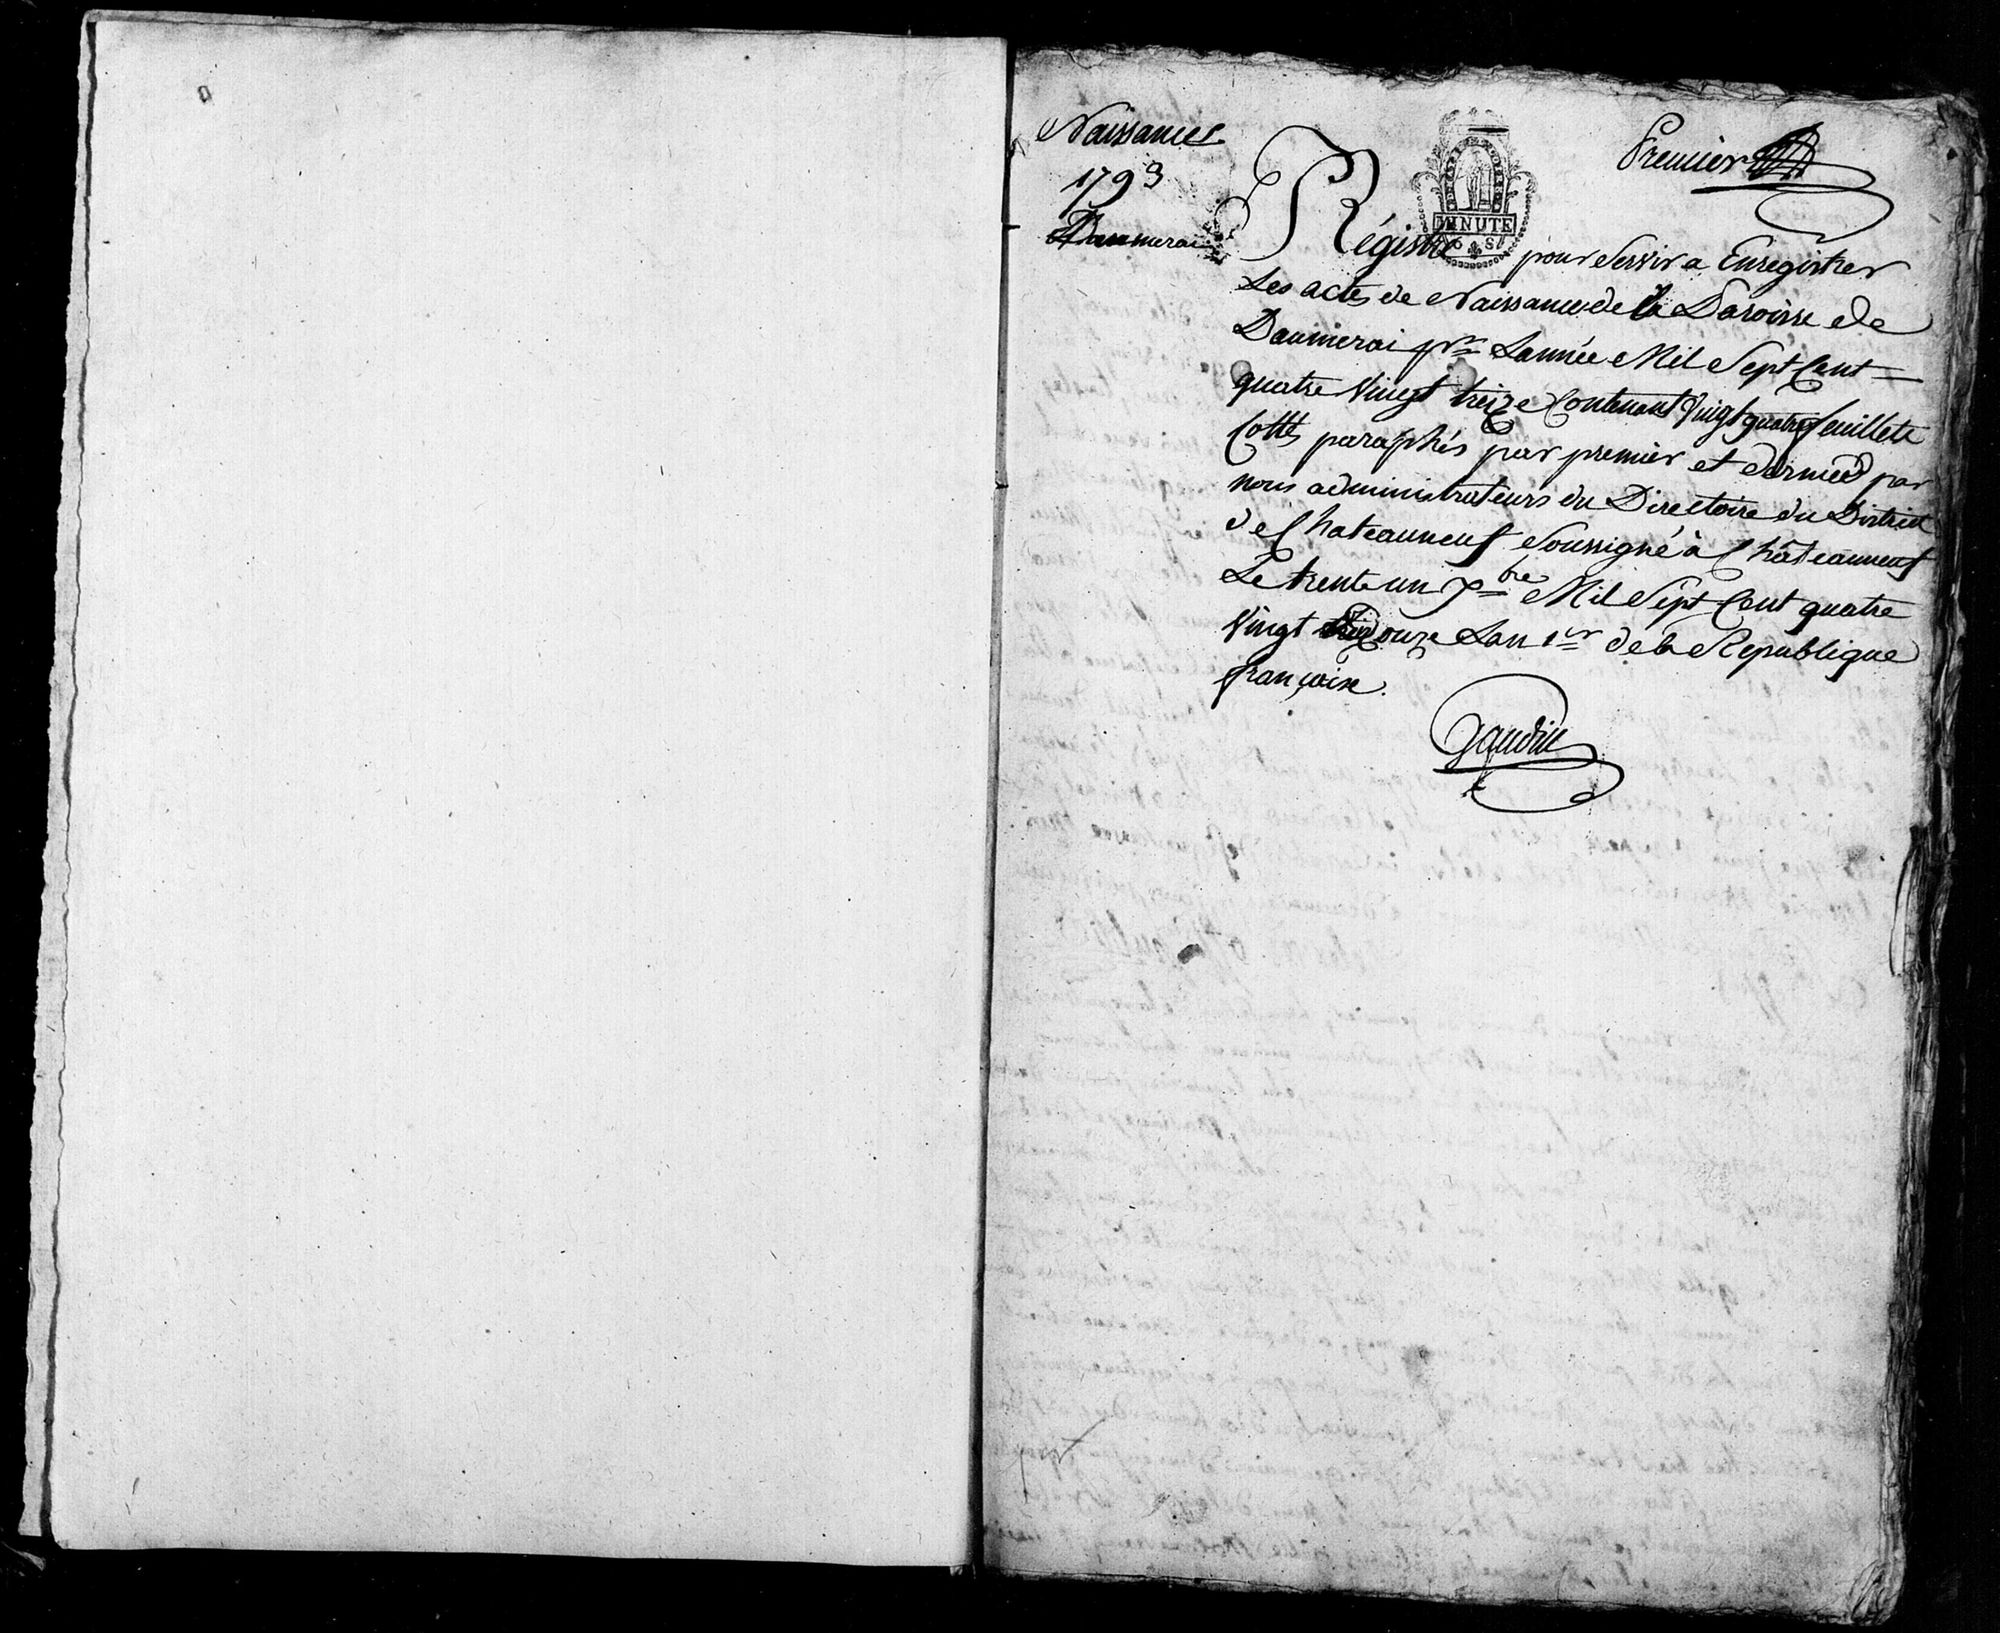 Naissances
1793
Daumerai
Premier
MINUTE
6 S
Régistre pour servir a Enregistrer
Les actes de Naissance de la Paroisse de
Daumerai pr Lannée Mil Sept Cent
quatre Vingt treize Contenant Vingt quatre feuillets
Cottés paraphés par premier et dernier par
nous administrateurs du Directoire du District
de Chateauneuf Soussigné à Châteauneuf
Le trente un Xbre Mil Sept Cent quatre
Vingt douze Lan 1er de la Republique
françoise.
Gaudin